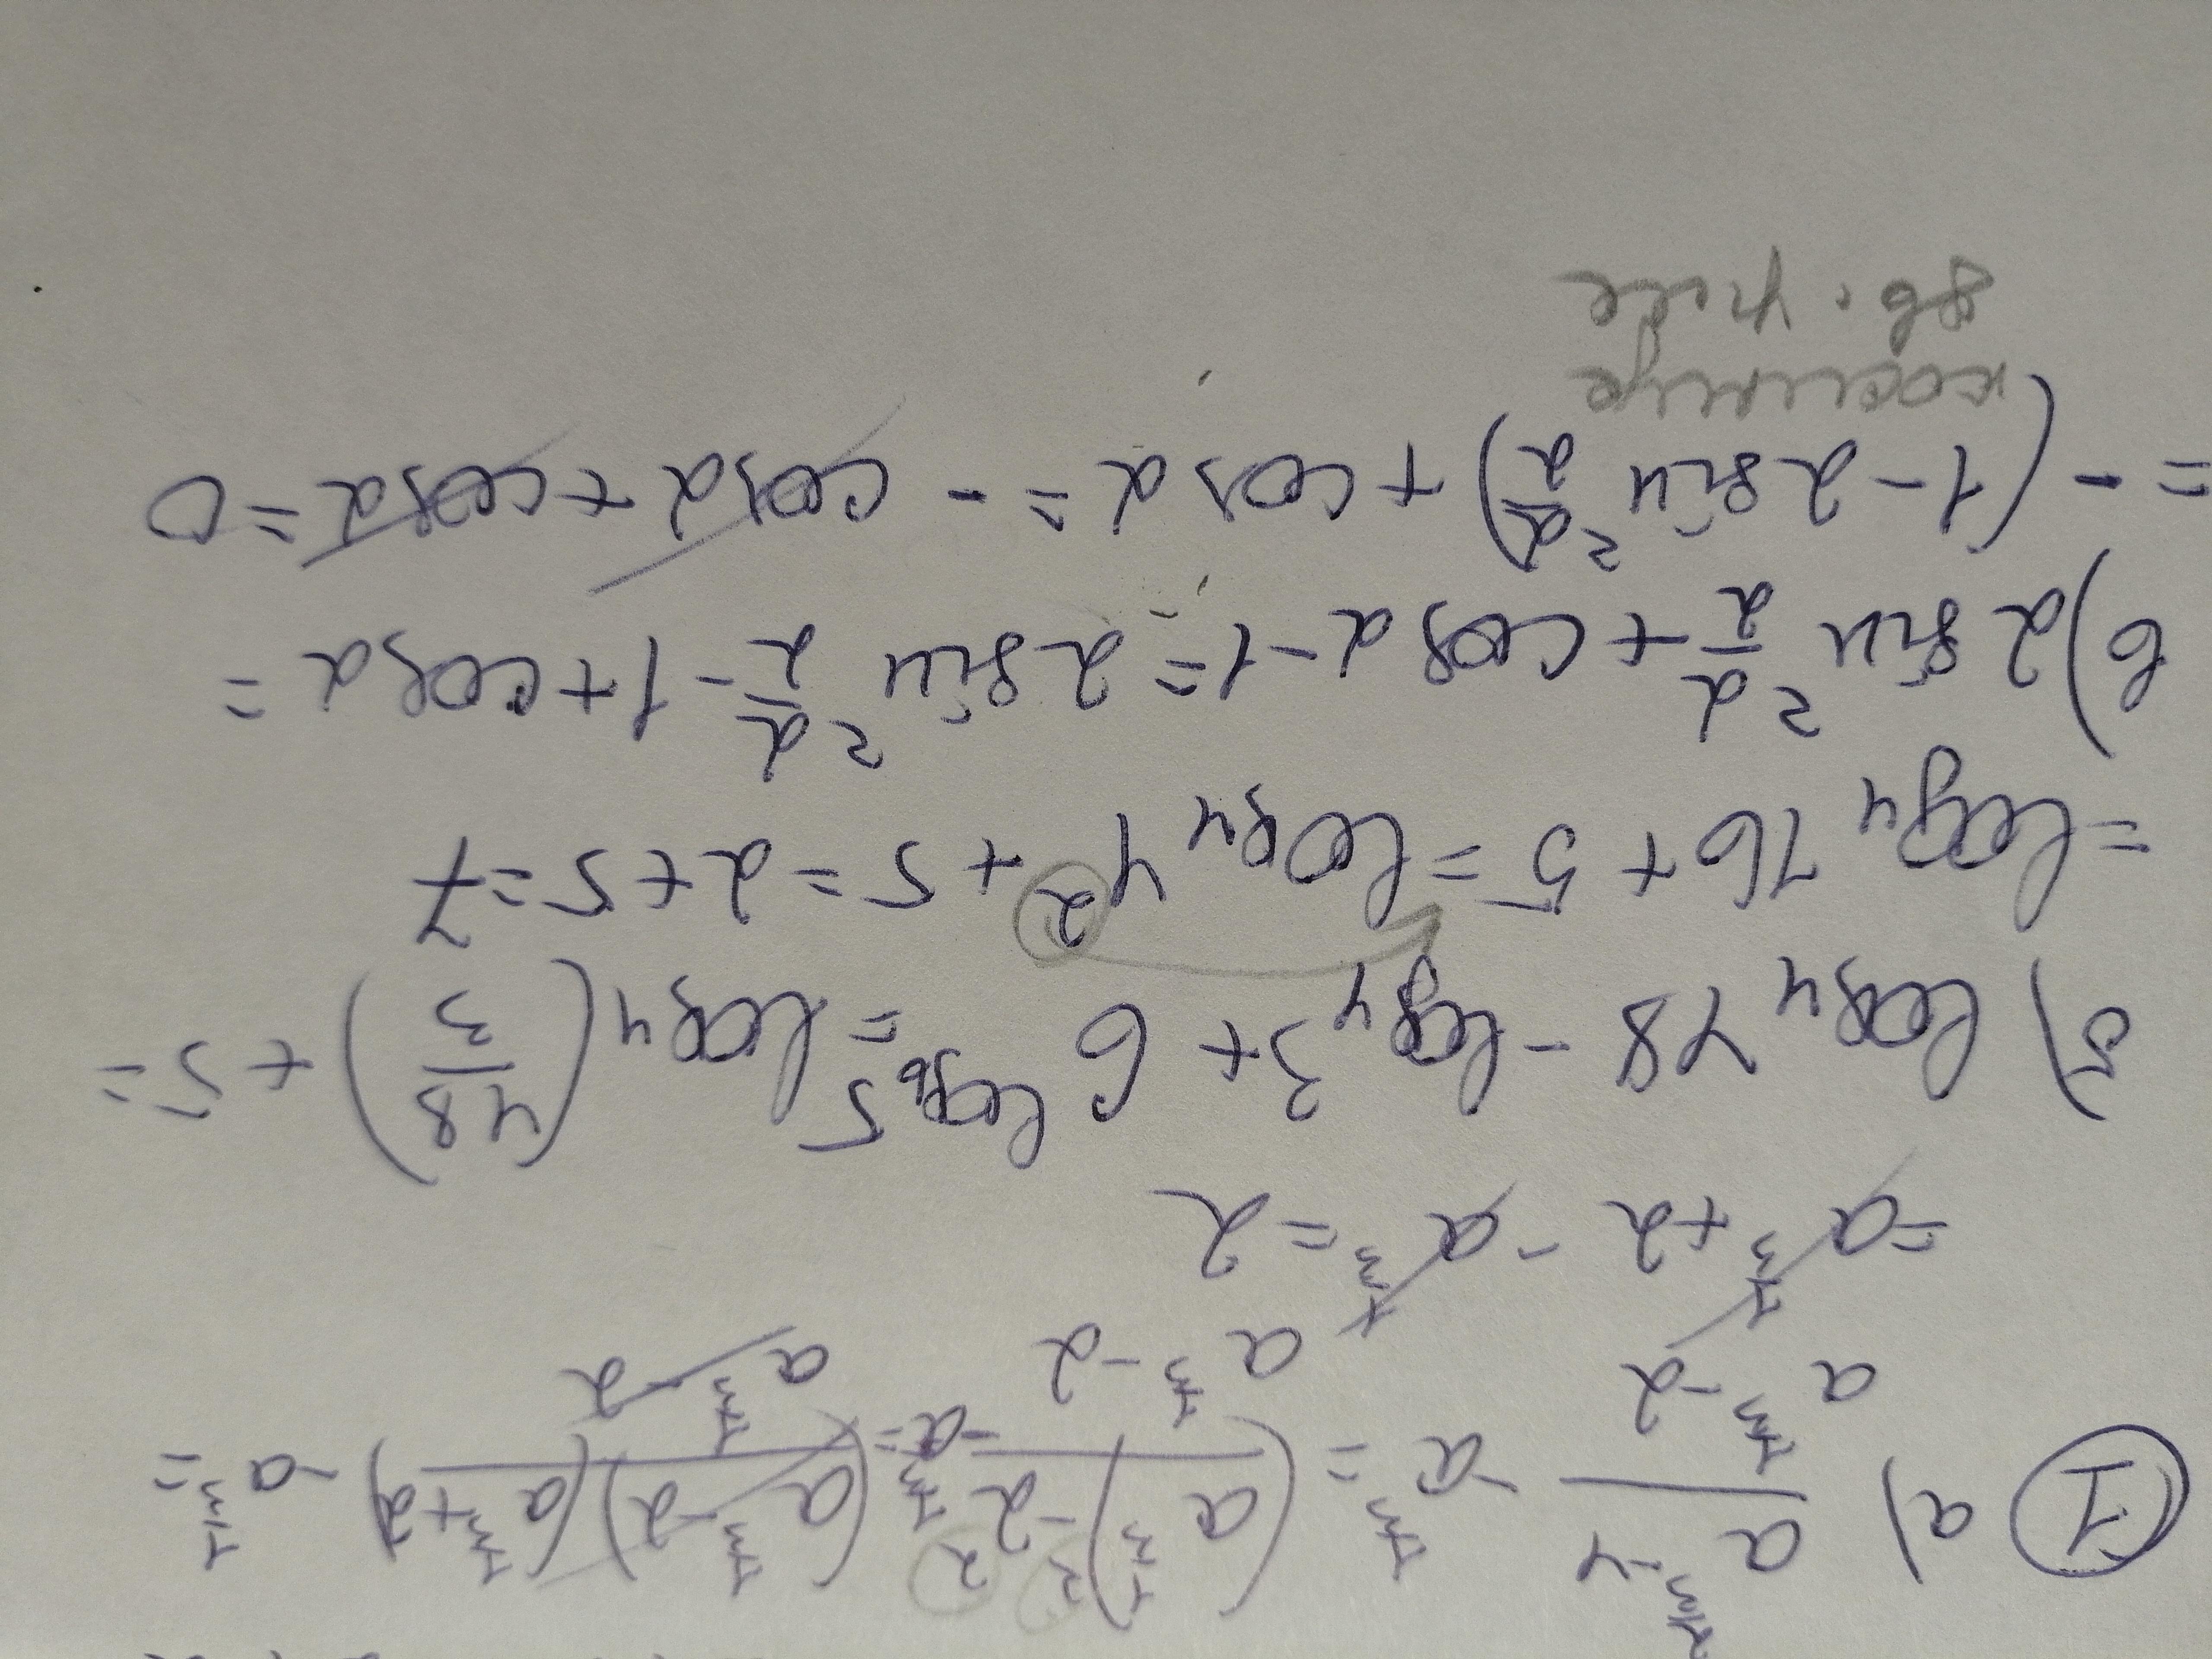 ① а) (a^{2/3} - 4)/(a^{1/3} - 2) - a^{1/3} = ((a^{1/3})^2 - 2^2)/(a^{1/3} - 2) - a^{1/3} = (a^{1/3} - 2)(a^{1/3} + 2)/(a^{1/3} - 2) - a^{1/3} =
= a^{1/3} + 2 - a^{1/3} = 2
б) log_4 48 - log_4 3 + 6^{log_6 5} = log_4 (48/3) + 5 =
= log_4 16 + 5 = log_4 4^2 + 5 = 2 + 5 = 7
в) 2 sin^2 α/2 + cos α - 1 = 2 sin^2 α/2 - 1 + cos α =
= - (1 - 2 sin^2 α/2) + cos α = - cos α + cos α = 0
косинус
дв. угла